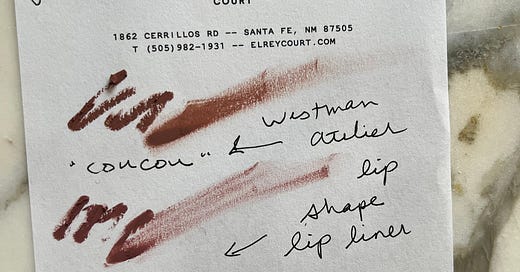 COURT
1862 CERRILLOS RD -- SANTA FE, NM 87505
T (505)982-1931 -- ELREYCOURT.COM
westman
atelier
"coucou"
lip
shape
lip liner